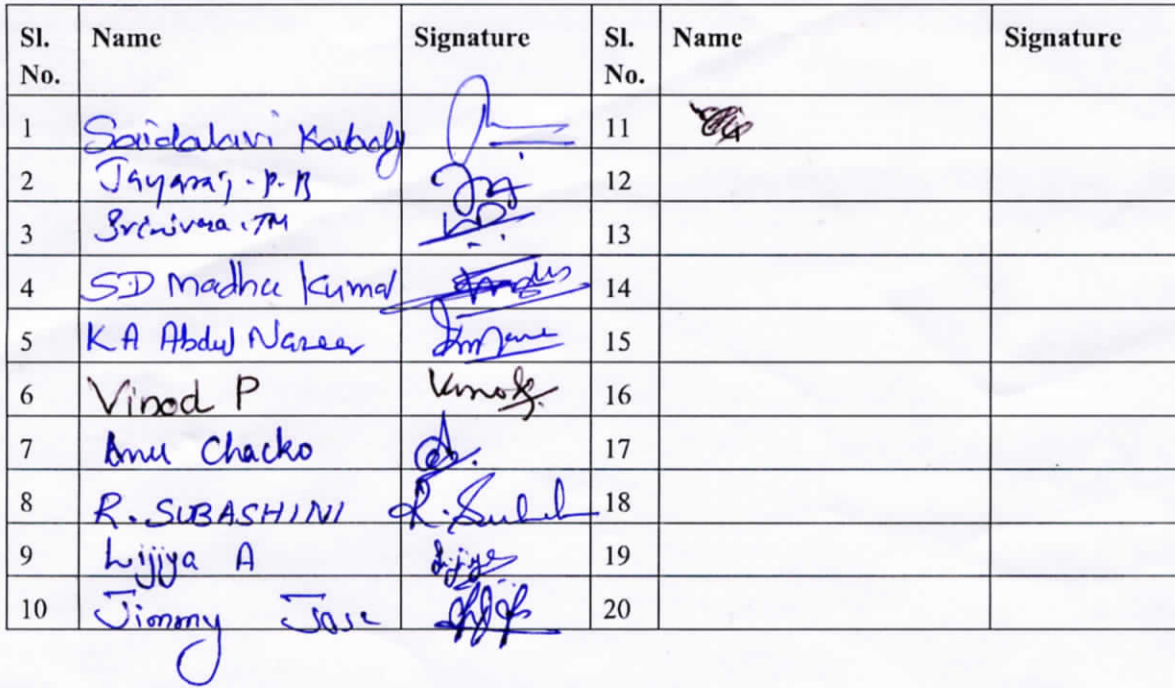 Sl. No. Name Signature Sl. No. Name Signature
1 Saidalavi Kalady 11
2 Jayaraj . P. B 12
3 Srinivasa . TM 13
4 SD Madhu Kumar 14
5 K A Abdul Nazeer 15
6 Vinod P Vinod 16
7 Anu Chacko 17
8 R. SUBASHINI R. Subash 18
9 Lijiya A Lijiya 19
10 Jimmy Jose 20